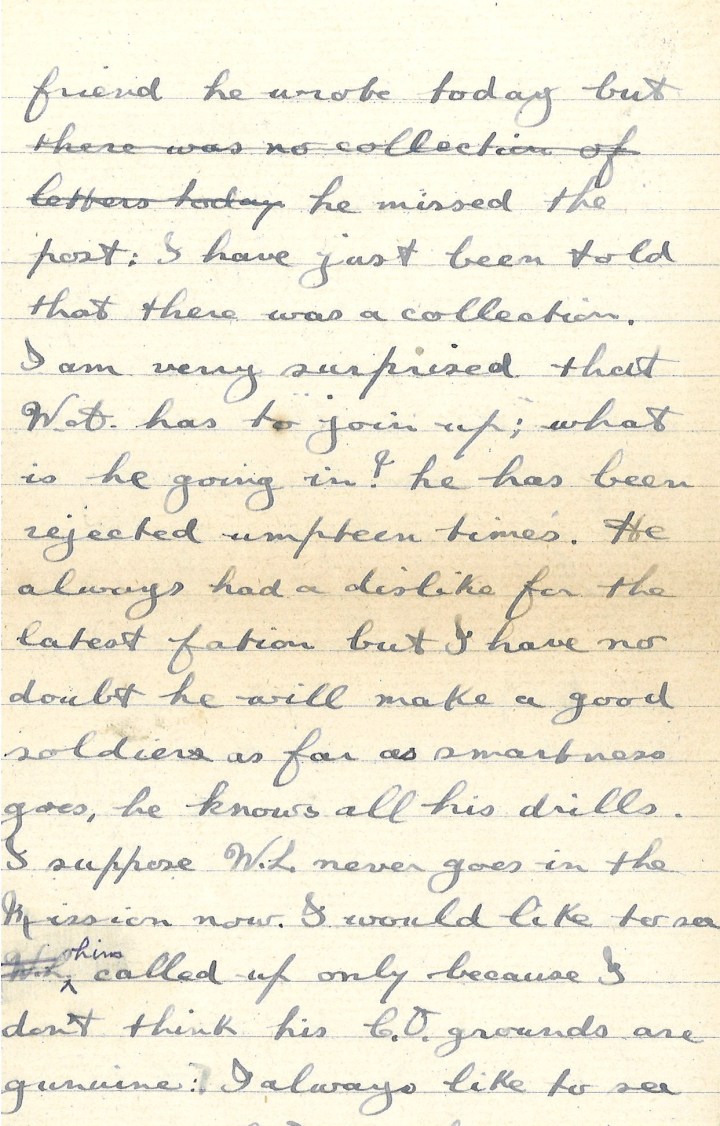 friend he wrote today but
there was no collection of
letters today he missed the
post: I have just been told
that there was a collection.
I am verry surprised that
W.A. has to join up; what
is he going in? he has been
rejected umpteen times. He
always had a dislike for the
latest fation but I have no
doubt he will make a good
soldier as far as smartness
goes, he knows all his drills.
I suppose W.L. never goes in the
Mission now. I would like to see
W.L. him called up only because I
don't think his C.O. grounds are
gunuine: I always like to see